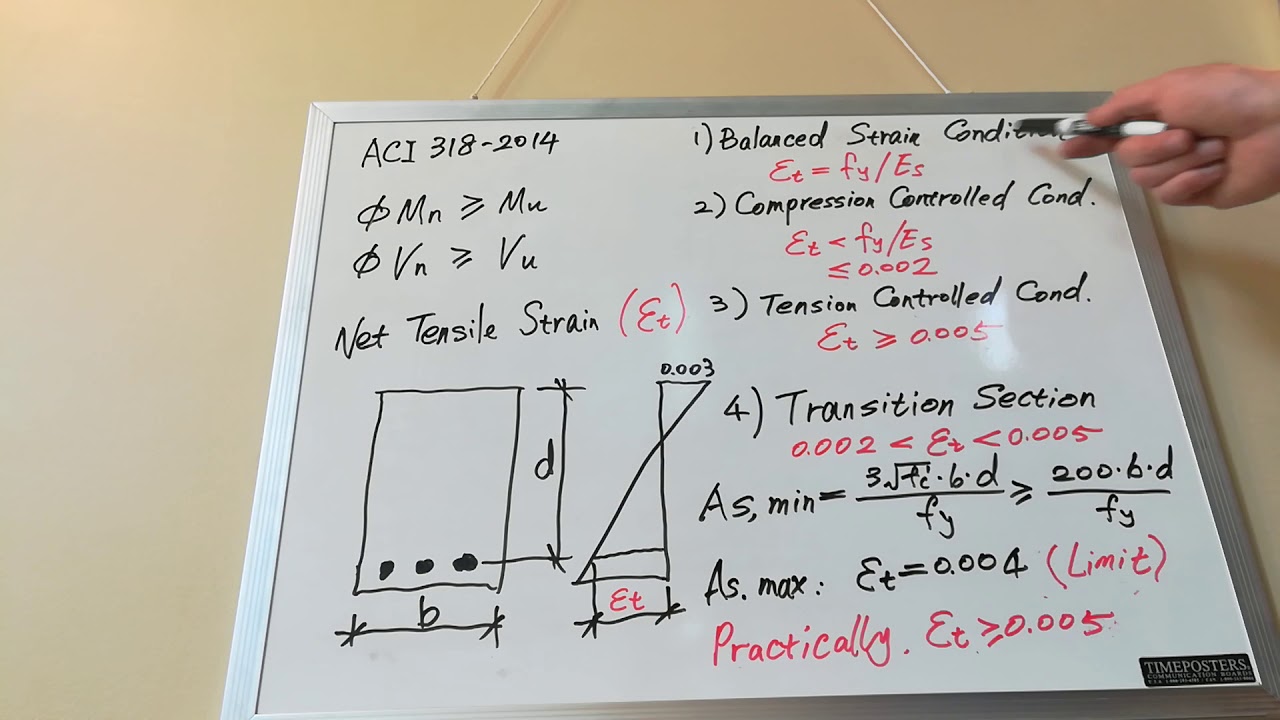 ACI 318-2014
ϕMn ≥ Mu
ϕVn ≥ Vu
Net Tensile Strain (εt)
d
b
0.003
εt
1) Balanced Strain Condition
εt = fy/Es
2) Compression Controlled Cond.
εt < fy/Es
≤ 0.002
3) Tension Controlled Cond.
εt ≥ 0.005
4) Transition Section
0.002 < εt < 0.005
As,min = 3√fc'·b·d / fy ≥ 200·b·d / fy
As.max: εt = 0.004 (Limit)
Practically. εt ≥ 0.005
TIMEPOSTERS
COMMUNICATION BOARDS